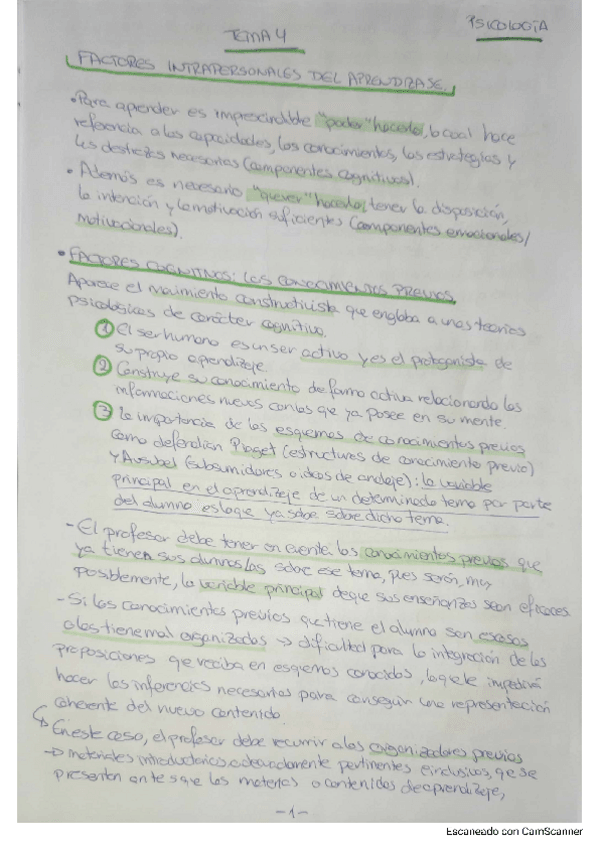 PSICOLOGÍA
TEMA 4
FACTORES INTRAPERSONALES DEL APRENDIZAJE.
• Para aprender es imprescindible "poder" hacerlo, lo cual hace
referencia a las capacidades, los conocimientos, las estrategias y
las destrezas necesarias (componentes cognitivos).
• Además es necesario "querer" hacerlo, tener la disposición,
la intención y la motivación suficientes (componentes emocionales/
motivacionales).
• FACTORES COGNITIVOS: LOS CONOCIMIENTOS PREVIOS
Aparece el movimiento constructivista que engloba a unas teorías
psicológicas de carácter cognitivo.
① El ser humano es un ser activo y es el protagonista de
su propio aprendizaje.
② Construye su conocimiento de forma activa relacionando las
informaciones nuevas con las que ya posee en su mente.
③ La importancia de los esquemas de conocimientos previos
como defendían Piaget (estructuras de conocimiento previo)
y Ausubel (subsumidores o ideas de anclaje): la variable
principal en el aprendizaje de un determinado tema por parte
del alumno es lo que ya sabe sobre dicho tema.
- El profesor debe tener en cuenta los conocimientos previos que
ya tienen sus alumnos/as sobre ese tema, pues serán, muy
posiblemente, la variable principal de que sus enseñanzas sean eficaces.
- Si los conocimientos previos que tiene el alumno son escasos
o los tiene mal organizados → dificultad para la integración de las
proposiciones que reciba en esquemas conocidos, lo que le impedirá
hacer las inferencias necesarias para conseguir una representación
coherente del nuevo contenido.
↳ En este caso, el profesor debe recurrir a los organizadores previos
→ materiales introductorios adecuadamente pertinentes e inclusivos, que se
presentan antes que los materiales o contenidos de aprendizaje,
-1-
Escaneado con CamScanner